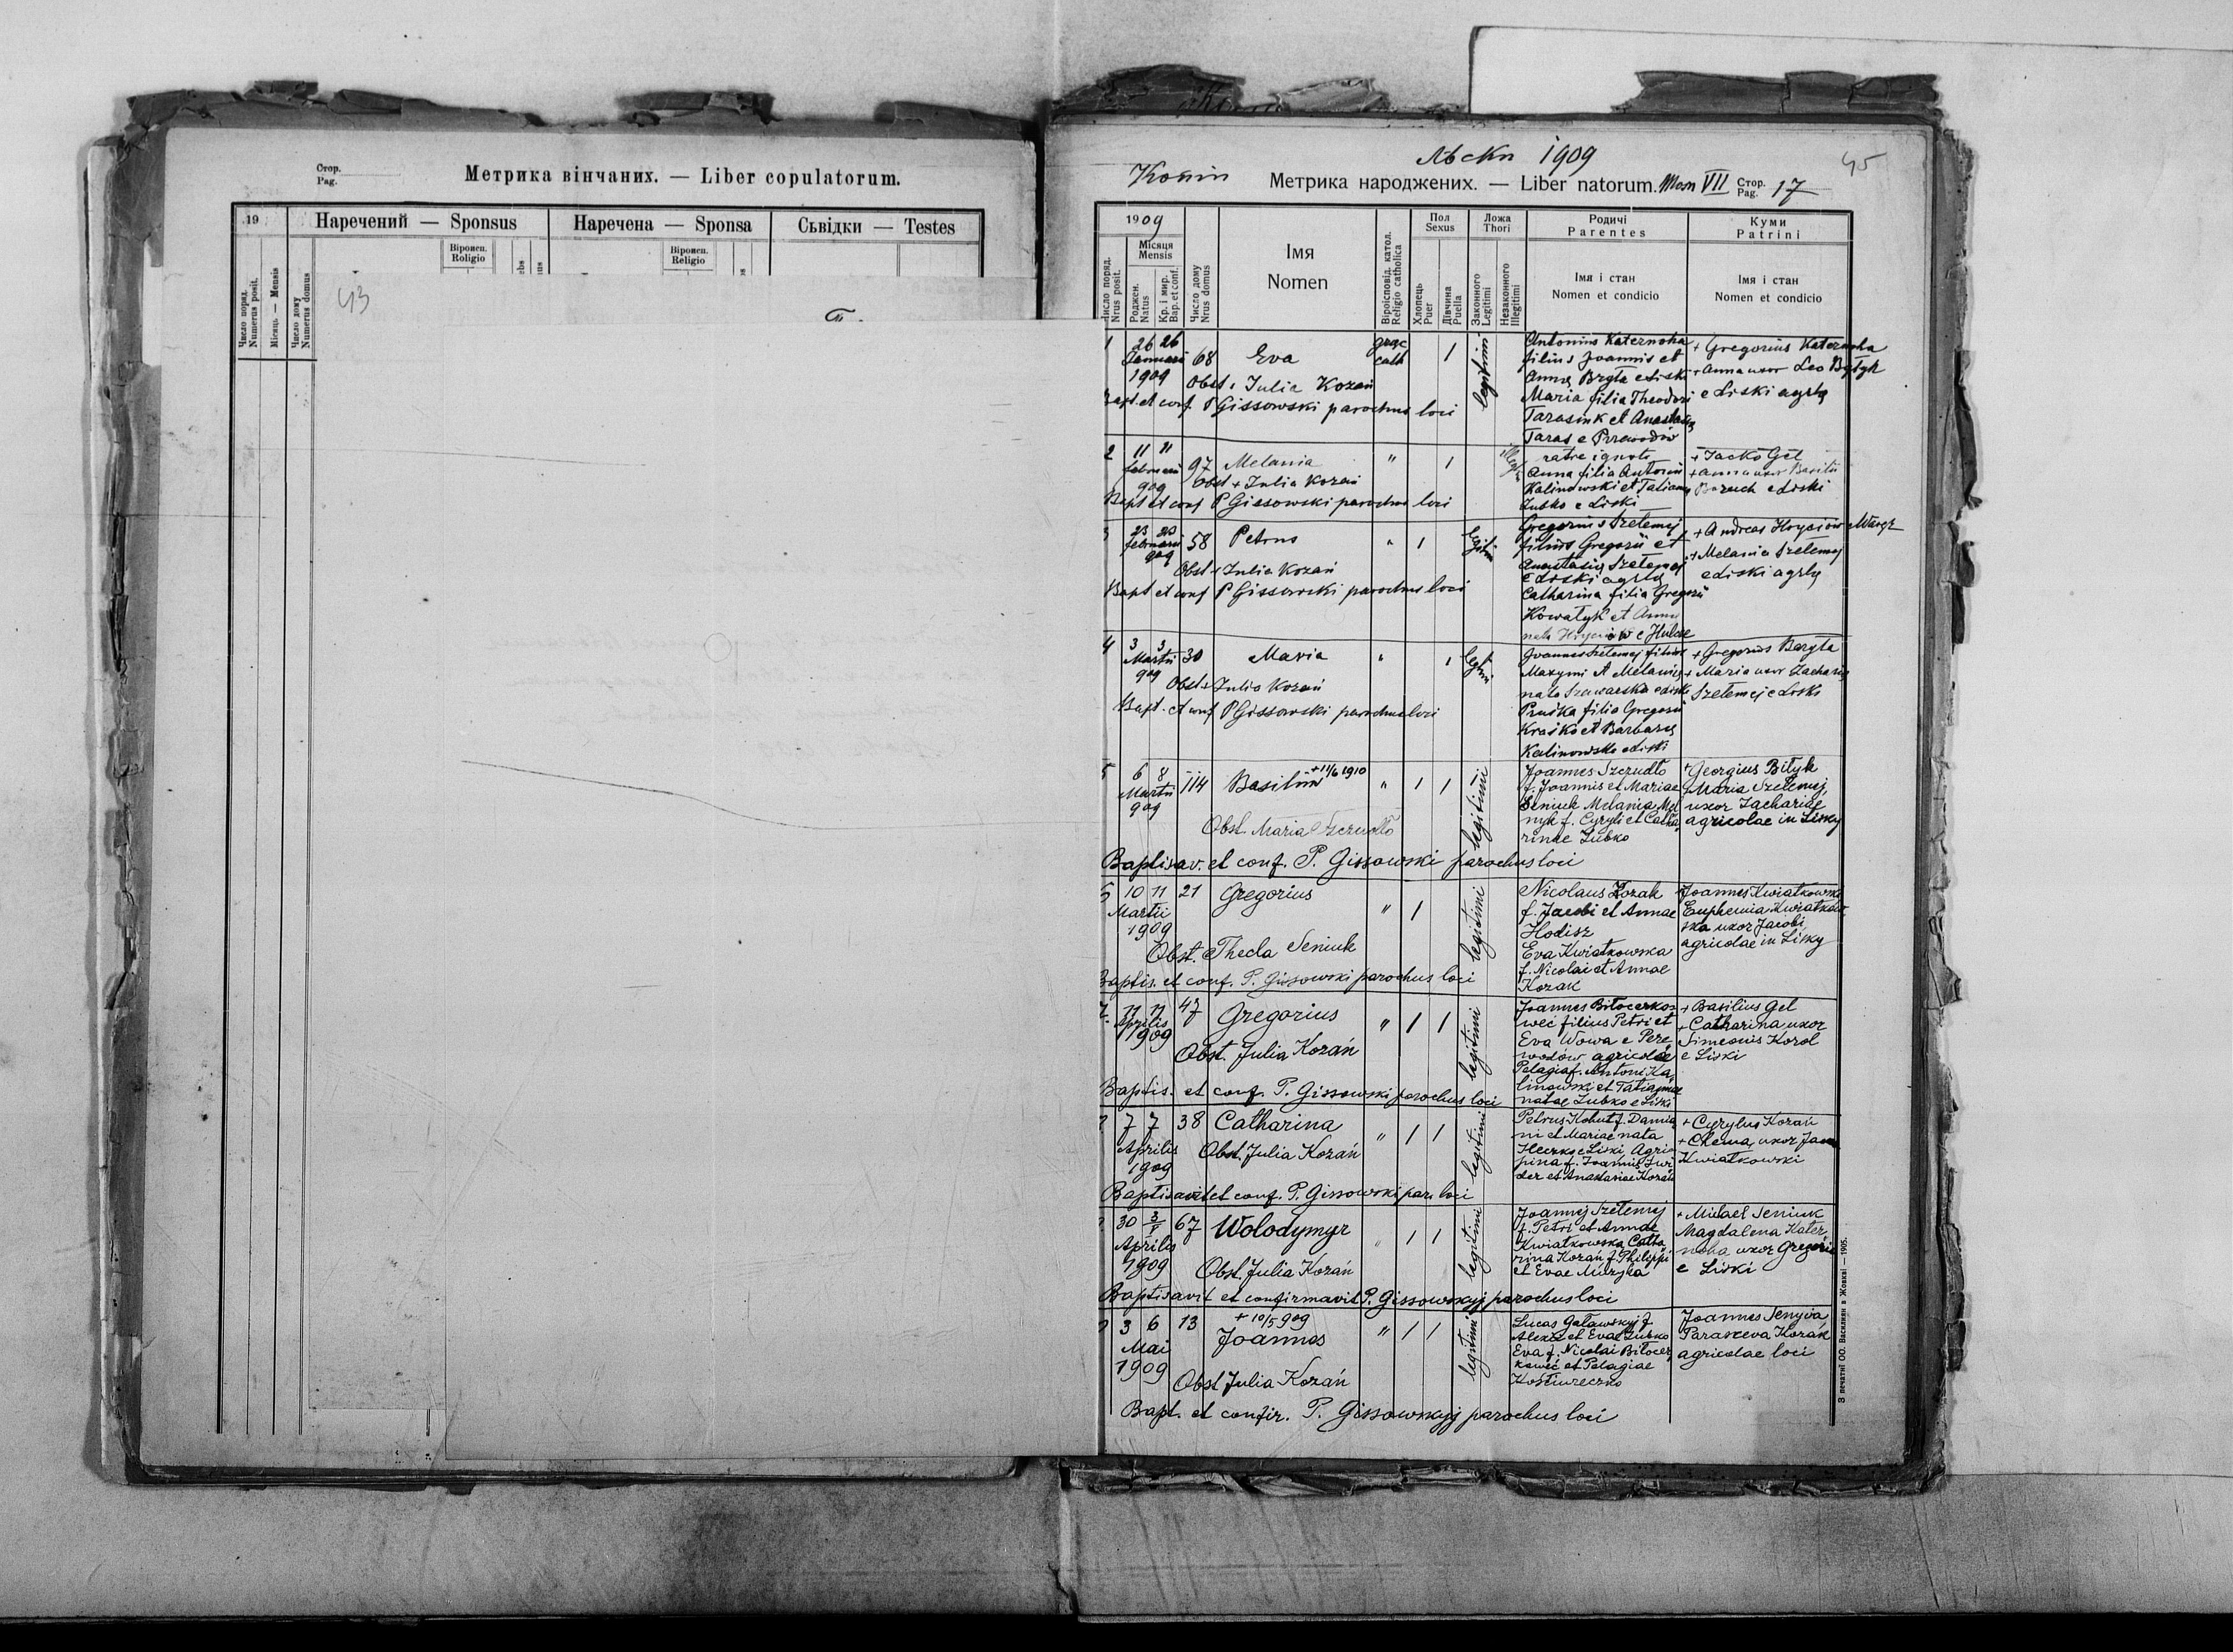 Стор.
Pag.
Метрика вінчаних. — Liber copulatorum.
19
Наречений — Sponsus
Наречена — Sponsa
Сьвідки — Testes
Віроисп.
Religio
Віроисп.
Religio
Число поряд.
Numerus posit.
Місяць — Mensis
Число дому
Numerus domus
43
45
1909
Метрика народжених. — Liber natorum.
VII
Стор.
Pag.
17
1909
Місяця
Mensis
Число поряд.
Nrus posit.
Роджен.
Natus
Кр. і мир.
Bap. et conf.
Число дому
Nrus domus
Імя
Nomen
Віроісповід. катол.
Religio catholica
Пол
Sexus
Хлопець
Puer
Дівчина
Puella
Ложа
Thori
Законного
Legitimi
Незаконного
Illegitimi
Родичі
Parentes
Імя і стан
Nomen et condicio
Куми
Patrini
Імя і стан
Nomen et condicio
1
26 26
Januarii
1909
68
Eva
graec
cath
1
legitimi
Obst. Julia Kozań
Bapt. et conf. P Gissowski parochus loci
Antonius Katernoha
filius Joannis et
Maria filia Theodori
Tarasiuk et Anastasię
Taras e Przewodów
+ Gregorius Katernoha
+ Anna uxor Leo
e Liski
2
11 11
februarii
909
97
Melania
"
1
Obst + Julia Kozań
Bapt et conf P Gissowski parochus loci
patre ignoto
Anna filia Antonii
Kalinowski et Tatianę
Zubko e Liski
+ Jacko Gel
+ Anna uxor Basilii
e Liski
3
23 23
februarii
909
58
Petrus
"
1
legitimi
Obst + Julia Kozań
Bapt et conf P Gissowski parochus loci
Gregorius Szelemej
filius Gregorii et
Anastasię Szelemej
e Liski
Catharina filia Gregorii
et Annę
+ Andreas Hryciów
+ Melania Szelemej
e Liski
4
3 3
Martii
909
30
Maria
"
1
legitimi
Obst. Julia Kozań
Bapt. et conf P Gissowski parochus loci
Joannes Szelemej filius
Maxymi et Melanię
filia Gregorii
et Barbarę
Kalinowska e Liski
+ Gregorius
+ Maria uxor Zacharię
Szelemej e Liski
5
6 8
Martii
909
114
Basilius
+11/6 1910
"
1 1
legitimi
Obst. Maria Szczudło
Baptisav. et conf. P. Gissowski parochus loci
Joannes Szczudło
f. Joannis et Mariae
Seniuk Melania Mel
nyk f. Cyryli et Catha
rinae Zubko
+ Georgius Bityk
Maria Szelemej,
uxor Zachariae
agricolae in Lisky
10 11
Martii
1909
21
Gregorius
"
1
legitimi
Obst. Thecla Seniuk
Baptis. et conf. P. Gissowski parochus loci
Nicolaus Kozak
f. Jacobi et Annae
Hodisz
Eva Kwiatkowska
f. Nicolai et Annae
Kozak
Joannes Kwiatkowski
Euphemia Kwiatkow
ska uxor Jacobi
agricolae in Lisky
Aprilis
1909
47
Gregorius
"
1 1
legitimi
Obst. Julia Kozań
Baptis. et conf. P. Gissowski parochus loci
Joannes Biłocerko
weć filius Petri et
Eva Wowa e Pere
wodów agricolae
Pelagia f. Antoni Ka
linowski et Tatiannae
natae Zubko e Liski
+ Basilius Gel
+ Catharina uxor
Simeonis Korol
e Liski
7 7
Aprilis
1909
38
Catharina
"
1 1
legitimi
Obst. Julia Kozań
Baptisavit et conf. P. Gissowski par. loci
Petrus Kohut f. Damia
ni et Mariae nata
e Liski, Agri
pina f. Joannis
et Anastasiae Kozań
+ Cyrylus Kozań
uxor
Kwiatkowski
30 3/V
Aprilis
1909
67
Wolodymyr
"
1 1
legitimi
Obst. Julia Kozań
Baptisavit et confirmavit P. Gissowskyj parochus loci
Joannes Szelemej
f. Petri et Annae
Kwiatkowska Catha
rina Kozań f. Philippi
et Evae
+ Michael Seniuk
Magdalena Kater
noha uxor Gregorii
e Liski
3 6
Mai
1909
13
+ 10/5 909
Joannes
"
1 1
legitimi
Obst Julia Kozań
Bapt. et confir. P. Gissowskyj parochus loci
Lucas Gaławskyj f.
Alexii et Evae Zubko
Eva f. Nicolai Biłocer
koweć et Pelagiae
Joannes
Parasceva Kozak
agricolae loci
З печатні ОО. Василиян в Жовкві — 1905.